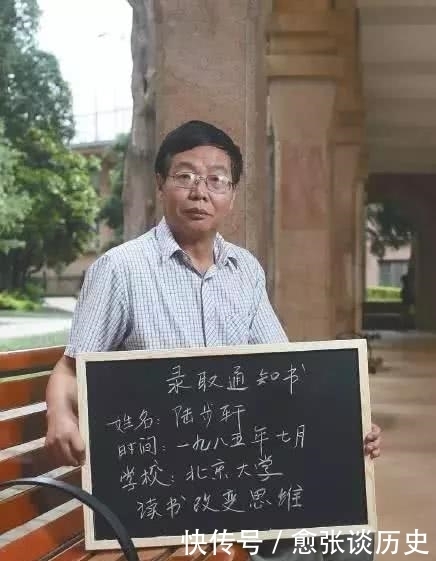 录取通知书
姓名：陆步轩
时间：一九八五年七月
学校：北京大学
读书改变思维
快传号 / 愈张谈历史